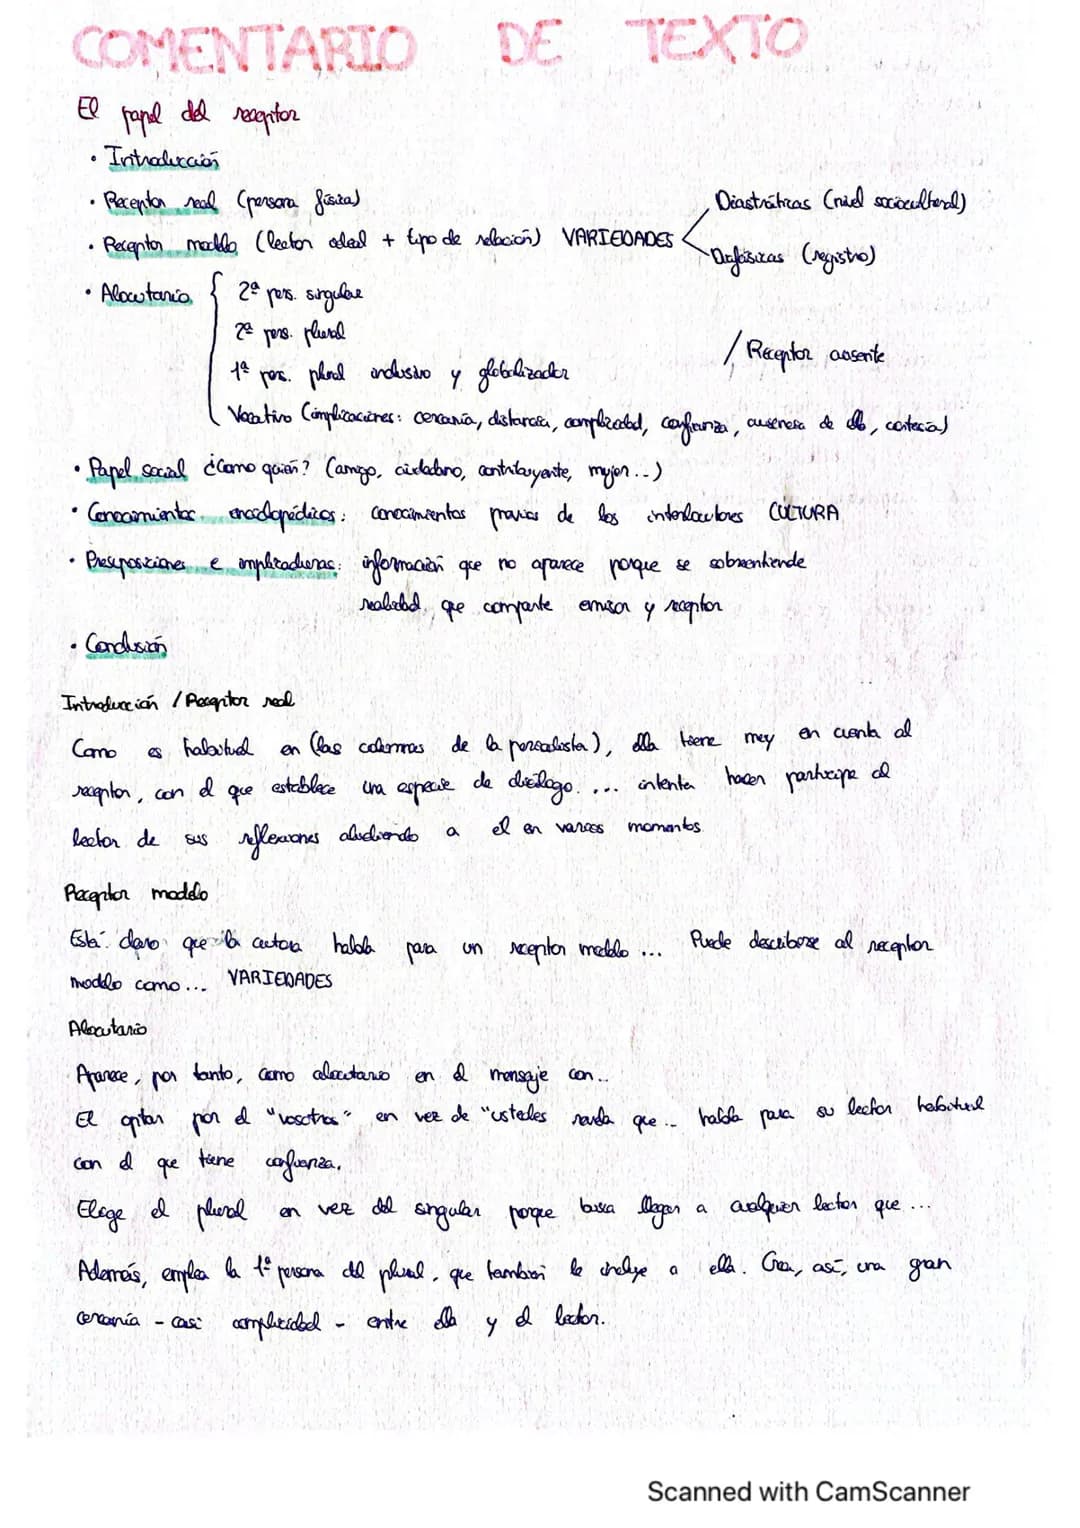 COMENTARIO DE TEXTO
El papel del receptor
• Introducción
• Receptor real (persona física)
Diastráticas (nivel sociocultural)
• Receptor modelo (lector ideal + tipo de relación) VARIEDADES
Diafásicas (registro)
• Alocutario
2ª pers. singular
2ª pers. plural
/ Receptor ausente
1ª pers. plural inclusivo y globalizador
Vocativo (implicaciones: cercanía, distancia, complicidad, confianza, ausencia de ella, cortesía)
• Papel social ¿Como quién? (amigo, ciudadano, contribuyente, mujer...)
• Conocimientos enciclopédicos: conocimientos previos de los interlocutores CULTURA
• Presuposiciones e implicaturas: información que no aparece porque se sobreentiende
realidad que comparte emisor y receptor
• Conclusión
Introducción / Receptor real
Como es habitual en (las columnas de la periodista), ella tiene muy en cuenta al
receptor, con el que establece una especie de diálogo. ... intenta hacer partícipe al
lector de sus reflexiones aludiendo a el en varios momentos
Receptor modelo
Está claro que la autora habla para un receptor modelo ... Puede describirse al receptor
modelo como... VARIEDADES
Alocutario
Aparece, por tanto, como alocutario en el mensaje con...
El optar por el "vosotros" en vez de "ustedes revela que ... habla para su lector habitual
con el que tiene confianza.
Elige el plural en vez del singular porque busca llegar a cualquier lector que ...
Además, emplea la 1ª persona del plural, que también le incluye a ella. Crea, así, una gran
cercanía - casi complicidad - entre ella y el lector.
Scanned with CamScanner